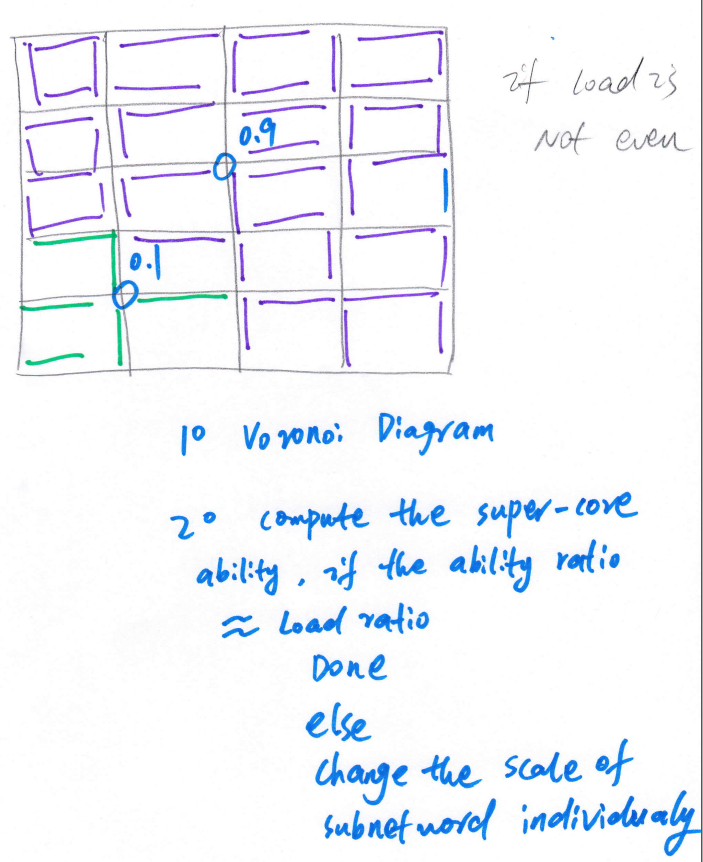 if load is
Not even
0.9
0.1
1° Voronoi Diagram
2° compute the super-core
ability, if the ability ratio
≈ Load ratio
Done
else
change the scale of
subnetword individualy